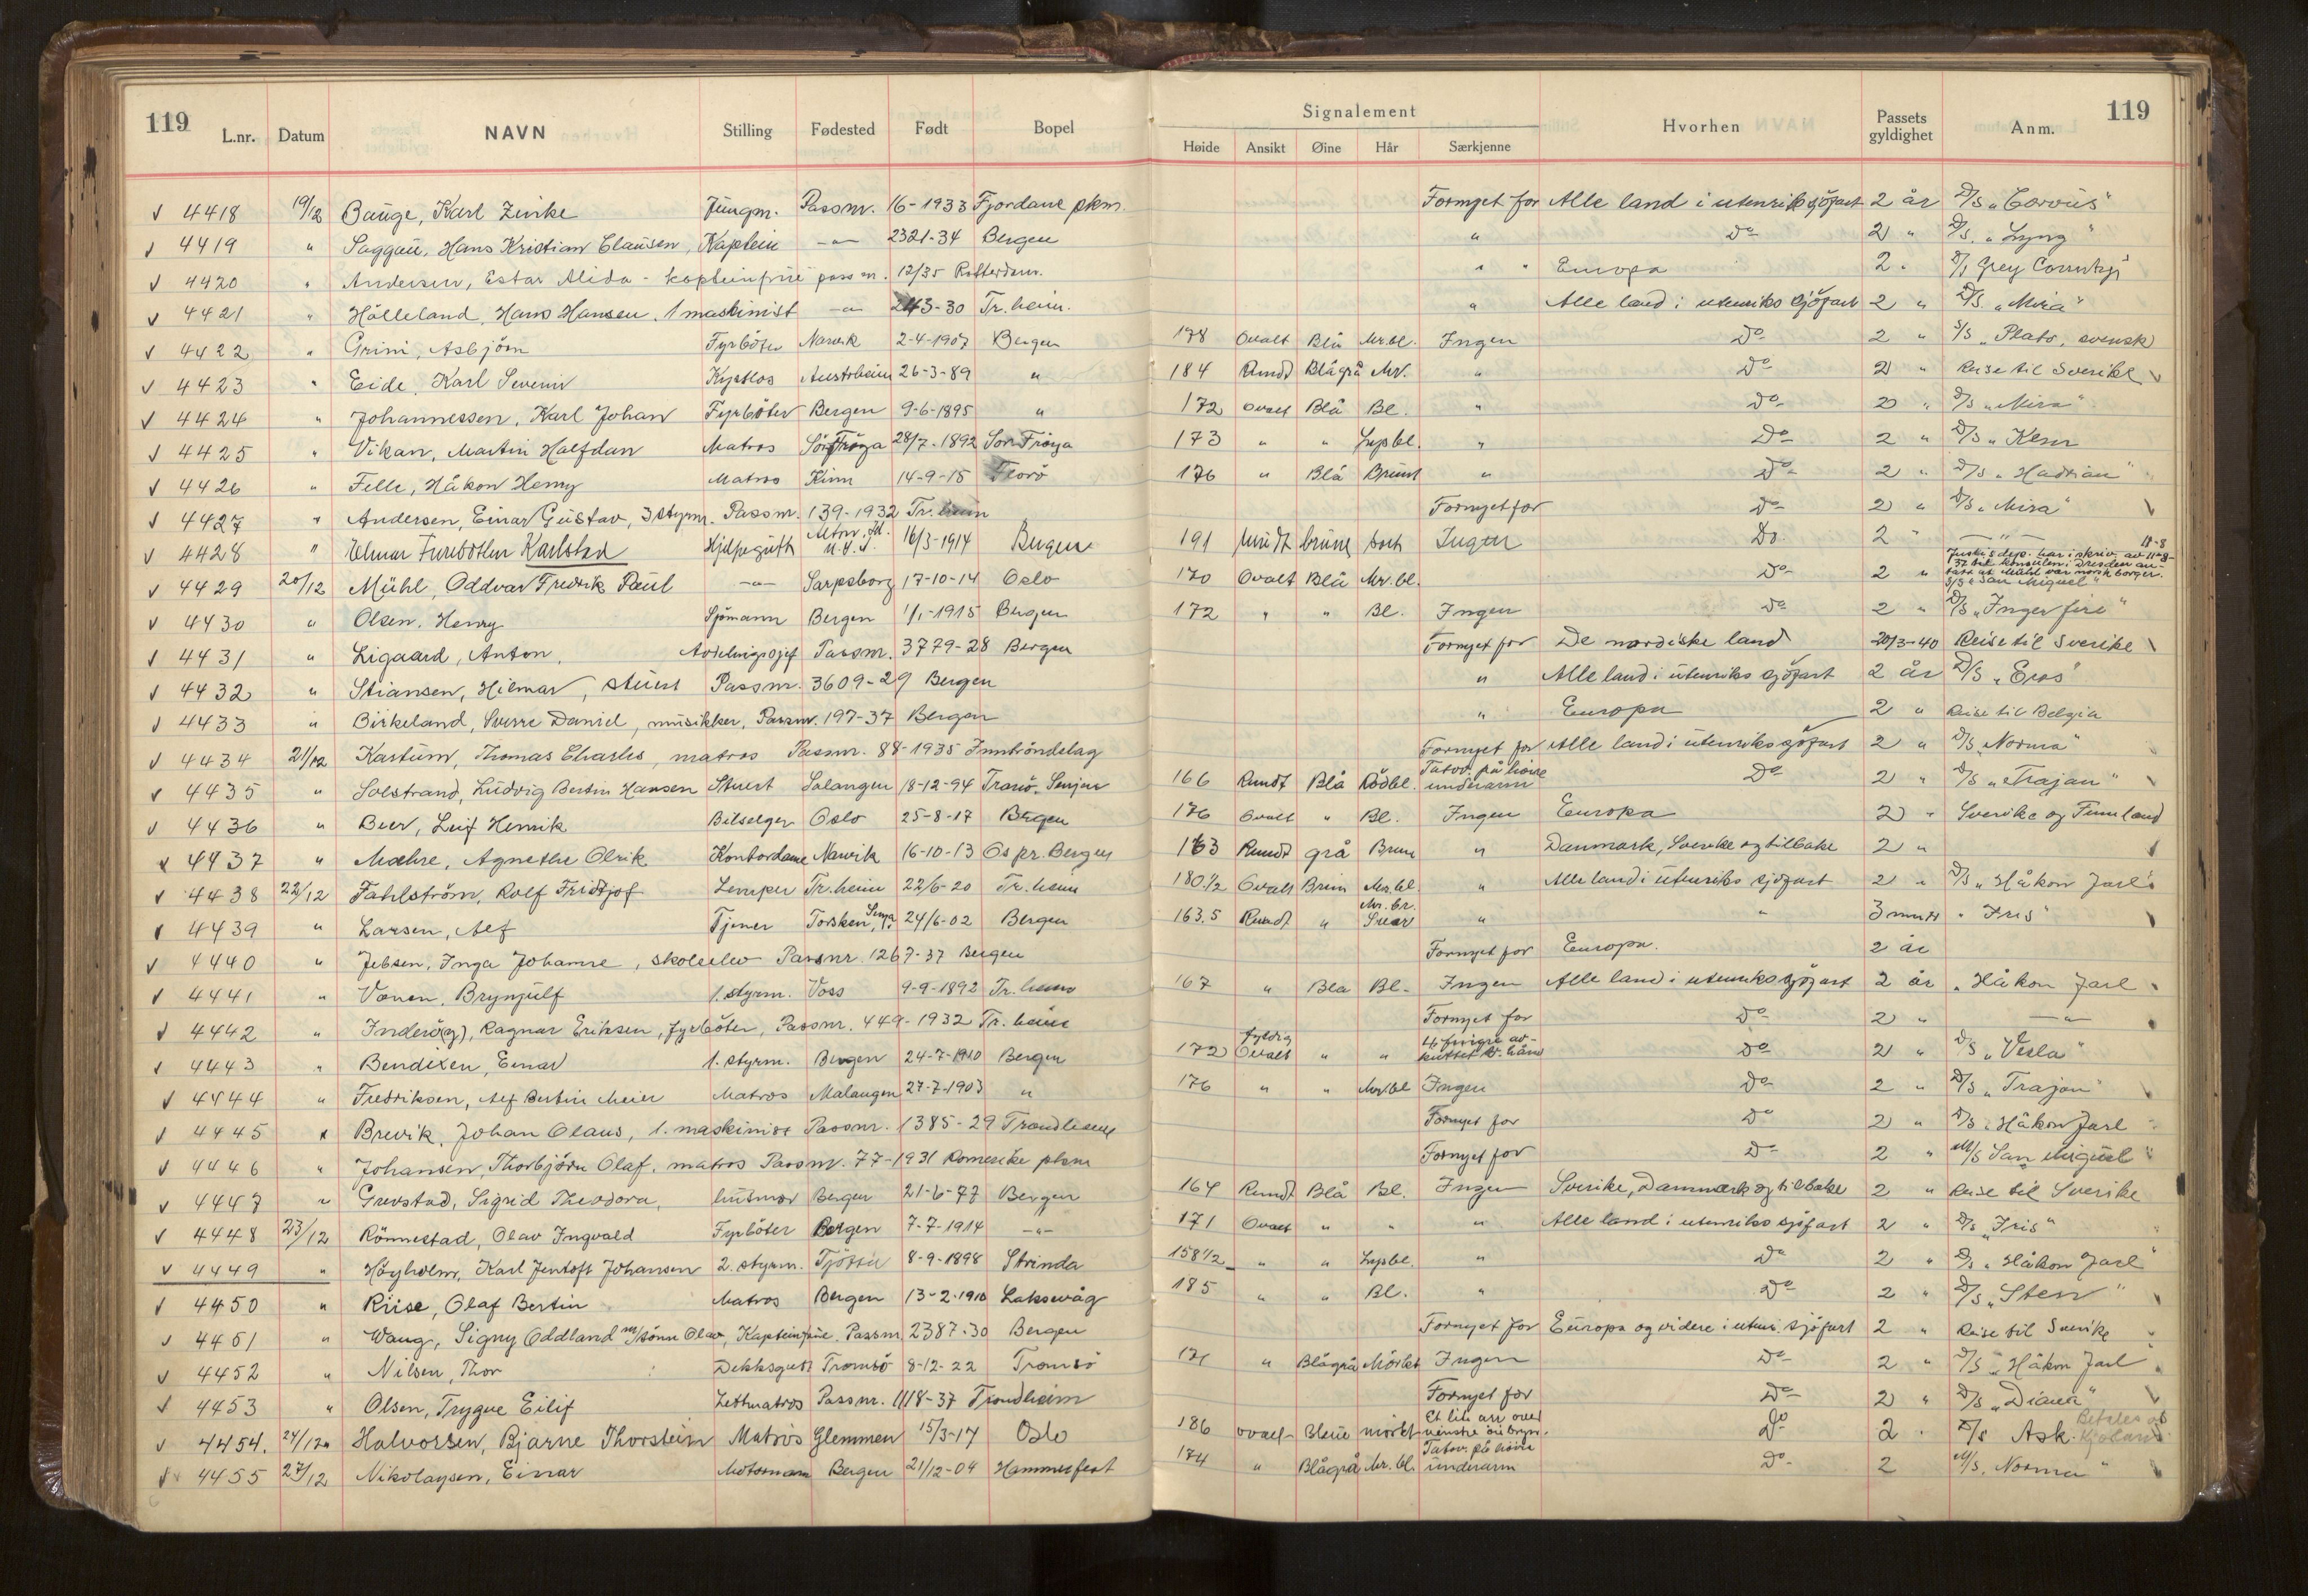 119
L.nr. Datum NAVN Stilling Fødested Født Bopel
Signalement
Høide Ansikt Øine Hår Særkjenne Hvorhen Passets gyldighet Anm.
119
4418 19/12 Bauge, Karl Jungm. Passnr. 16-1933 Fjordane pkm. Fornyet for Alle land i utenriks sjöfart 2 år D/S „Corvus"
4419 " Saggau, Hans Kristian Clausen, Kaptein -"- 2321-34 Bergen " Do 2 " D/S. „Lyng"
4420 " Andersen, Ester Alida - kapteinfrue passnr. 12/35 Rotterdam. " " Europa 2 "
4421 " Hölleland, Hans Hansen, 1 maskinist -"- 243-30 Tr.heim. " Alle land i utenriks sjöfart 2 " D/S. „Mira"
4422 " Grini, Asbjörn Fyrböter Narvik 2-4-1907 Bergen 178 Ovalt Blå Mr.bl. Ingen Do 2 " S/S „Plato, svensk
4423 " Eide, Karl Severin Kystlos Austrheim 26-3-89 " 184 Rundt Blågrå Mr. " Do 2 " Reise til Sverike
4424 " Johannessen, Karl Johan Fyrböter Bergen 9-6-1895 " 172 Ovalt Blå Bl. " Do 2 " D/S „Mira"
4425 " Vikan, Martin Halfdan Matros Sör Fröya 28/7-1892 Sör Fröya 173 " " Lysbl. " Do 2 " D/S „Kem
4426 " Felle, Håkon Henry Matros Kinn 14-9-15 Florö 176 " Blå Brunt " Do 2 " D/S „Hadrian"
4427 " Andersen, Einar Gustav, 3 styrm. Passnr. 139-1932 Tr.heim Fornyet for Do 2 " D/S „Mira"
4428 " Elmar Furebotten Karlstad Hjelpegutt U.S.A. 16/3-1914 Bergen 191 Rundt brune Sort Ingen Do. 2 " -"-
4429 20/12 Mühl, Oddvar Fredrik Paul -"- Sarpsborg 17-10-14 Oslo 170 Ovalt Blå Mr.bl. Do 2 " Justisdep. har i skriv av 11/8-37 bl. konsulen i Dresden antatt at Mühl var norsk borger. S/S „San Miguel"
4430 " Olsen, Henry Sjömann Bergen 1/1-1915 Bergen 172 " " Bl. Ingen Do 2 " D/S „Ingerfire"
4431 " Ligaard, Anton, Avdelingssjef Passnr. 3779-28 Bergen Fornyet for De nordiske land 20/3-40 Reise til Sverike
4432 " Stiansen, Hilmar, stuert Passnr. 3609-29 Bergen " Alle land i utenriks sjöfart 2 år D/S „Eros"
4433 " Birkeland, Sverre Daniel, musikker, Passnr. 197-37 Bergen " Europa 2 " Reise til Belgia
4434 21/12 Kastum, Thomas Charles, matros Passnr. 88-1935 Inntröndelag Fornyet for Alle land i utenriks sjöfart 2 " D/S „Norma"
4435 " Solstrand, Ludvig Bertin Hansen Stuert Salangen 18-12-94 Tranö-Senjen 166 Rundt Blå Rödbl. Tatov. på höire underarm Do 2 " D/S „Trajan"
4436 " Beer, Leif Henrik Bilselger Oslo 25-8-17 Bergen 176 Ovalt " Bl. Ingen Europa 2 " Sverike og Finnland
4437 " Mæhre, Agnethe Olrik Kontordame Narvik 16-10-13 Os pr. Bergen 163 Rundt grå Brun " Danmark, Sverike og tilbake 2 "
4438 22/12 Fahlström, Rolf Fridtjof Lemper Tr.heim 22/6-20 Tr.heim 180.1/2 Ovalt Brun Mr.bl. " Alle land i utenriks sjöfart 2 " D/S „Håkon Jarl"
4439 " Larsen, Alf Tjener Torsken, 24/6-02 Bergen 163.5 Rundt " Mr.br. " " 3 mndr " Iris"
4440 " Jebsen, Inga Johanne, skoleelev Passnr 1267-37 Bergen Fornyet for Europa. 2 år
4441 " Vönen, Brynjulf 1.styrm. Voss 9-9-1892 Tr.heim 167 " Blå Bl. Ingen Alle land i utenriks sjöfart 2 år „Håkon Jarl
4442 " Inderö(y), Ragnar Eriksen, fyrböter, Passnr. 449-1932 Tr.heim Fornyet for Do 2 " -"-
4443 " Bendixen, Einar 1.styrm. Bergen 24-7-1910 Bergen 172 fyldig Ovalt " " 4 fingre avkuttet v. hånd Do 2 " D/S „Vesla"
4444 " Fredriksen, Alf Bertin Meier Matros Malangen 27-7-1903 " 176 " " Mr.bl Ingen Do 2 " D/S „Trajan"
4445 " Brevik, Johan Olaus, 1. maskinist Passnr. 1385-29 Trondheim Fornyet for Do 2 " D/S „Håkon Jarl
4446 " Johansen, Thorbjörn Olaf, matros Passnr. 77-1931 Romerike pkm Fornyet for Do 2 " M/S San Miguel"
4447 " Grevstad, Sigrid Theodora, husmor Bergen 21-6-77 Bergen 164 Rundt Blå Bl. Ingen Sverike, Danmark og tilbake 2 " Reise til Sverike
4448 23/12 Rönnestad, Olav Ingvald Fyrböter Bergen 7-7-1914 -"- 171 Ovalt " " " Alle land i utenriks sjöfart 2 " D/S „Iris"
4449 " Höyholm, Karl Jentoft Johansen 2. styrm. Tjötta 8-9-1898 Strinda 158 1/2 " " Lysbl. " Do 2 " D/S „Håkon Jarl"
4450 " Riise, Olaf Bertin Matros Bergen 13-2-1910 Laksevåg 185 " " Bl. " Do 2 " D/S „Sten"
4451 " Waug, Signy Oddland m/sönn Olav, Kapteinfrue, Passnr 2387-30 Bergen Fornyet for Europa og videre i uten. sjöfart 2 " Reise til Sverike
4452 " Nilsen, Thor Dekksgutt Tromsö 8-12-22 Tromsö 171 " Blågrå Mörket Ingen Do 2 " D/S „Håkon Jarl"
4453 " Olsen, Trygve Eilif Lettmatros Passnr. 1118-37 Trondheim Fornyet for Do 2 " D/S „Diana"
4454. 24/12 Halvorsen, Bjarne Thorstein Matros Glemmen 15/3-17 Oslo 186 ovalt Blåe mörkt Et lite arr over venstre öiebryn. Do 2 " D/S Ask.
4455 27/12 Nikolaysen, Einar Motormann Bergen 21/12-04 Hammerfest 174 " Blågrå Mr.bl. Tatov. på höire underarm Do 2 M/S. „Norma"